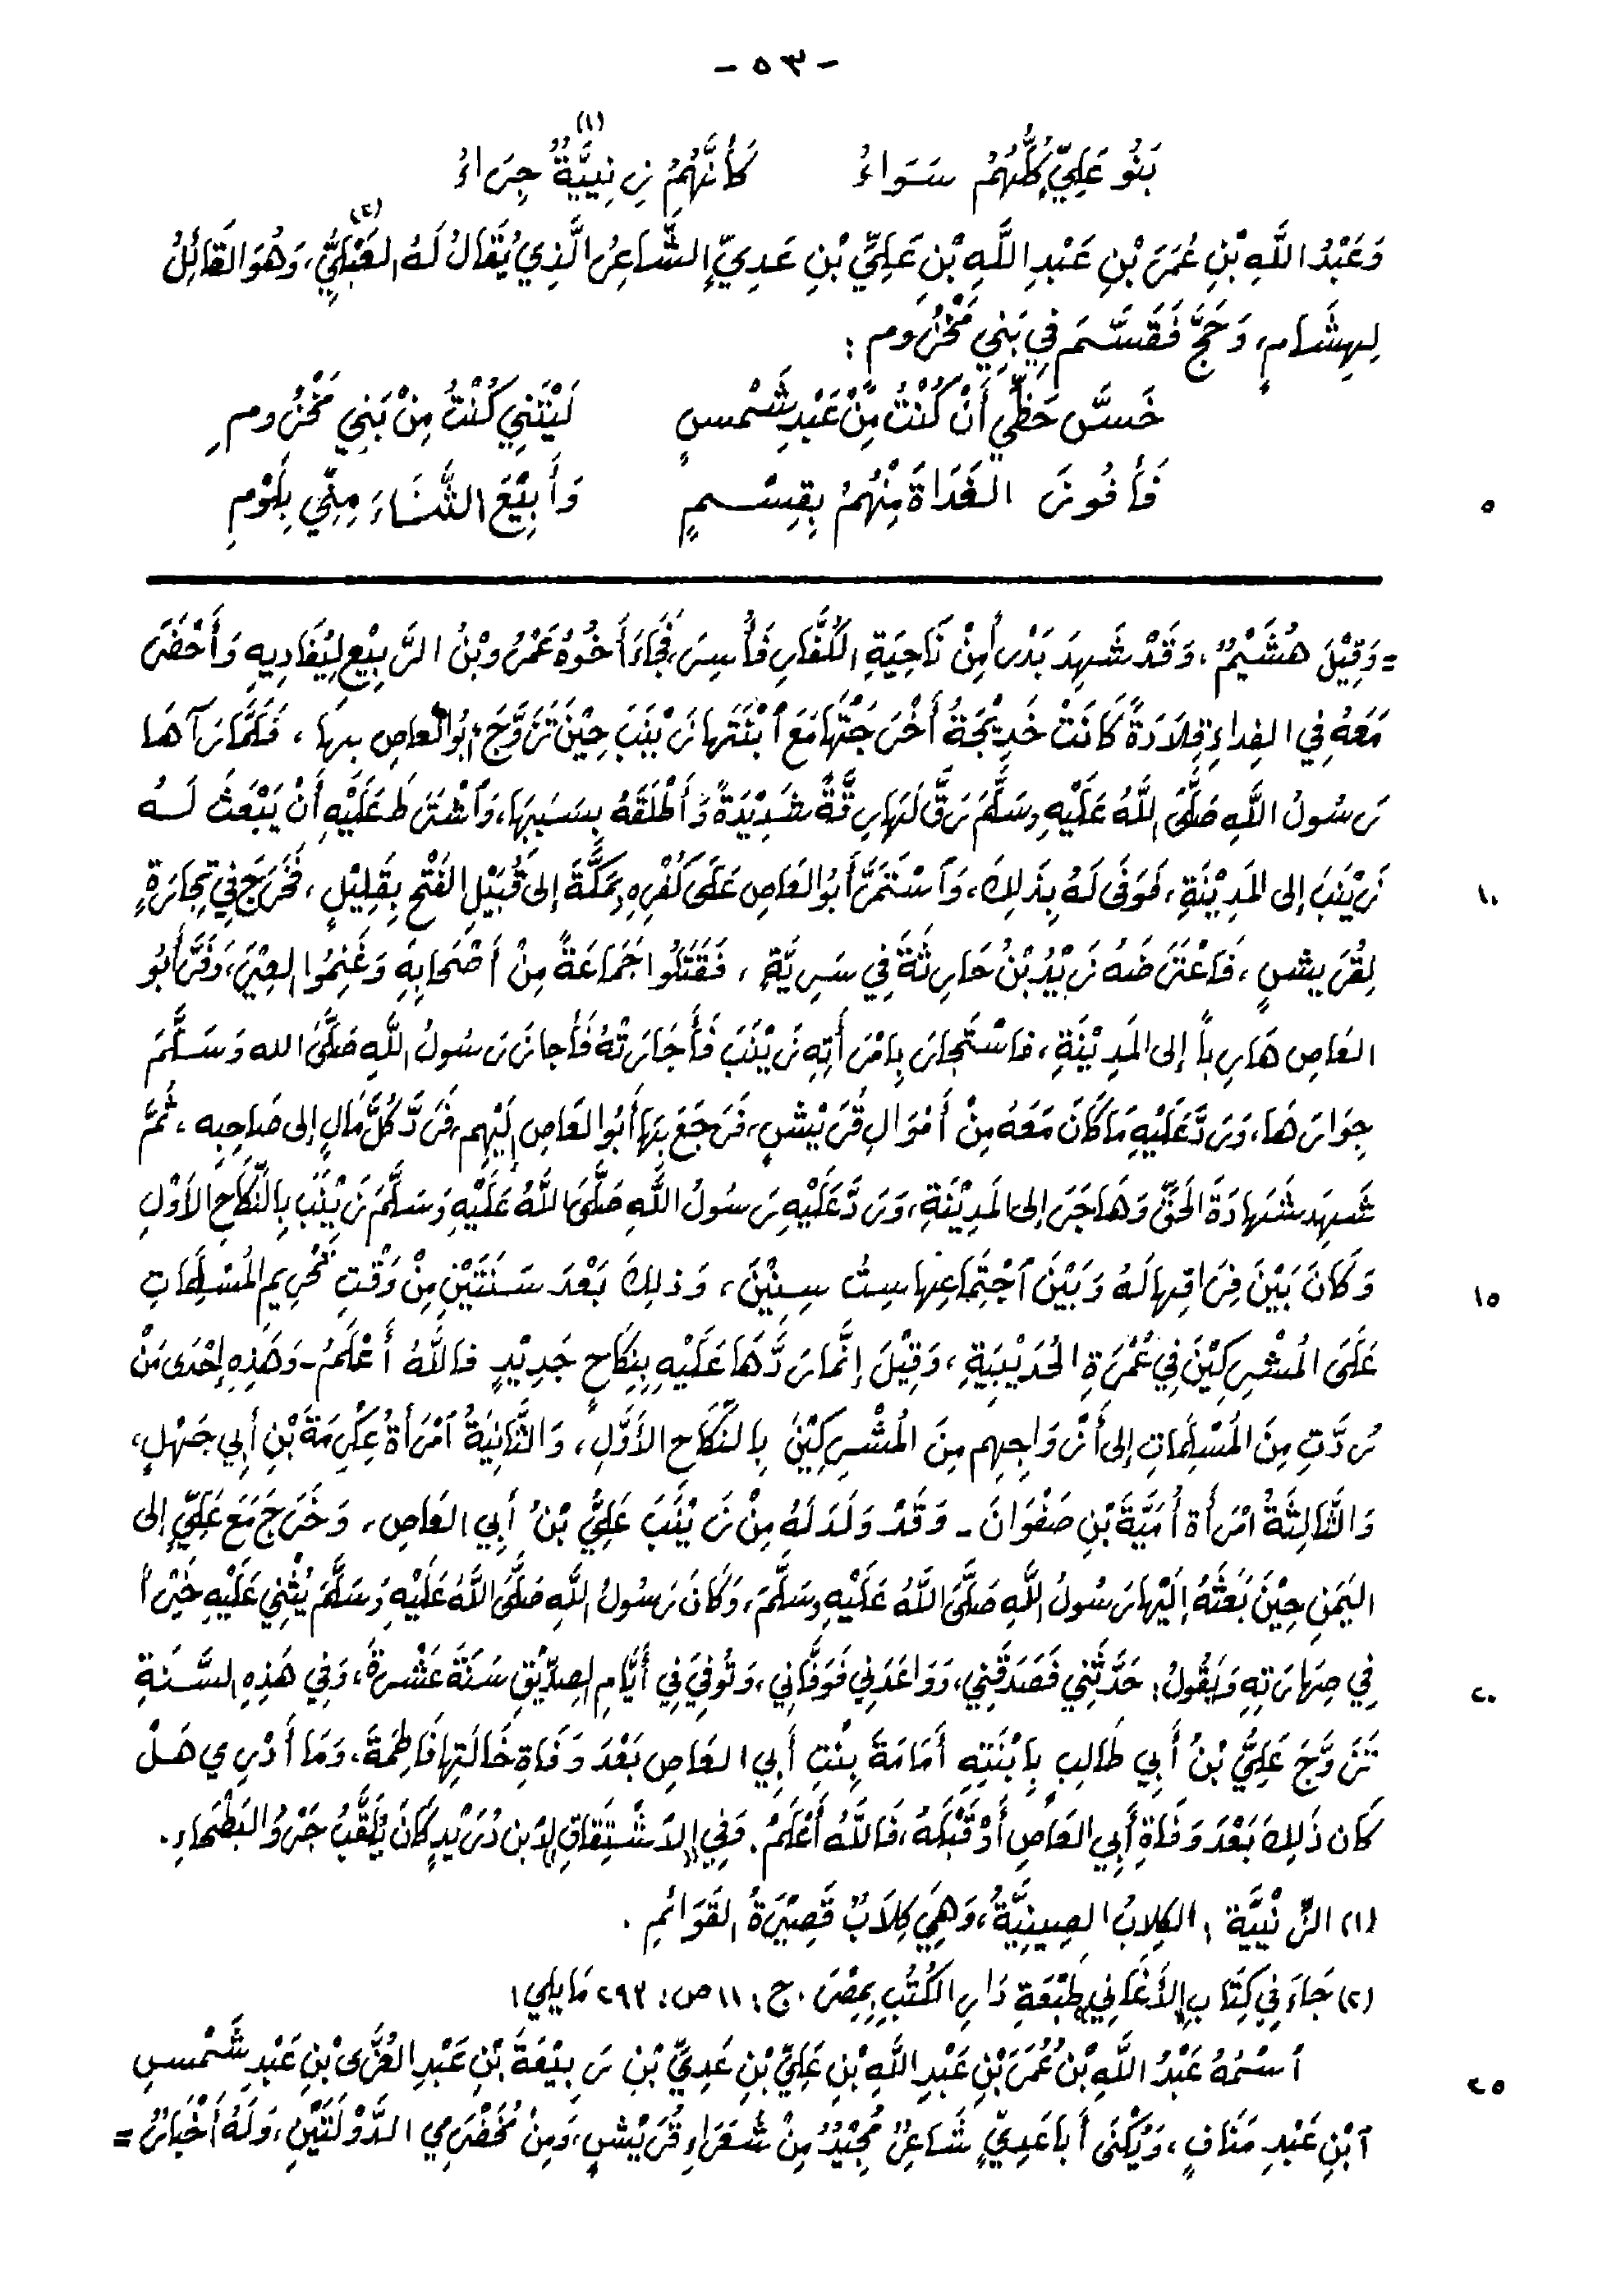 - ٥٣ -
بَنُو عَلِيٍّ كُلُّهُمُ سَوَاءُ كَأَنَّهُمُ زِنِيِّيَّةٌ جِرَاءُ (١)
وَعَبْدُ اللَّهِ بْنِ عُمَرَ بْنِ عَبْدِ اللَّهِ بْنِ عَلِيِّ بْنِ عَدِيٍّ الشَّاعِرُ الَّذِي يُقَالُ لَهُ العَبْلِيُّ (٢)، وَهُوَ القَائِلُ
لِهِشَامٍ، وَحَجَّ فَقَسَّمَ فِي بَنِي مَخْزُومٍ:
خَسَّ حَظِّي أَنْ كُنْتُ مِنْ عَبْدِ شَمْسٍ لَيْتَنِي كُنْتُ مِنْ بَنِي مَخْزُومِ
فَأَفُوزَ الغَدَاةَ مِنْهُمُ بِقِسْمٍ وَأَبِيْعَ الثَّنَاءَ مِنِّي بِلَوْمِ
٥
= وَقِيْلَ هُشَيْمٌ، وَقَدْ شَهِدَ بَدْراً مِنْ نَاحِيَةِ الكُفَّارِ فَأُسِرَ، فَجَاءَ أَخُوهُ عَمْرُو بْنُ الرَّبِيْعِ لِيُفَادِيهِ وَأَحْضَرَ
مَعَهُ فِي الفِداءِ قِلاَدَةً كَانَتْ خَدِيْجَةُ أَخْرَجَتْهَا مَعَ ٱبْنَتِها زَيْنَبَ حِيْنَ تَزَوَّجَ أَبُو العاصِ بِهَا، فَلَمَّا رَآهَا
رَسُولُ اللَّهِ صَلَّى اللَّهُ عَلَيْهِ وسَلَّمَ رَقَّ لَهَا رِقَّةً شَدِيْدَةً وَأَطْلَقَهُ بِسَبَبِهَا، وَٱشْتَرَطَ عَلَيْهِ أَنْ يَبْعَثَ لَهُ
زَيْنَبَ إلى المَدِيْنَةِ، فَوَفَى لَهُ بِذَلِكَ، وَٱسْتَمَرَّ أَبُو العَاصِ عَلَى كُفْرِهِ بِمَكَّةَ إلى قُبَيْلِ الفَتْحِ بِقَلِيْلٍ، فَخَرَجَ فِي تِجَارَةٍ
١٠
لِقُرَيشٍ، فَاعْتَرَضَهُ زَيْدُ بْنُ حَارِثَةَ فِي سَرِيَّةٍ، فَقَتَلُوا جَمَاعَةً مِنْ أَصْحَابِهِ وَغَنِمُوا العِيْرَ، وَفَرَّ أَبُو
العَاصِ هَارِباً إلى المَدِيْنَةِ، فاسْتَجارَ بِامْرَأَتِهِ زَيْنَبَ فَأَجَارَتْهُ فَأَجازَ رَسُولُ اللَّهِ صَلَّى الله وَسَلَّمَ
جِوَارَهَا، وَرَدَّ عَلَيْهِ مَا كَانَ مَعَهُ مِنْ أَمْوَالِ قُرَيْشٍ، فَرَجَعَ بِهَا أَبُو العَاصِ إِلَيْهِم، فَرَدَّ كُلَّ مَالٍ إلى صَاحِبِه، ثُمَّ
شَهِدَ شَهَادَةَ الحَقِّ وَهَاجَرَ إلى المَدِيْنَةِ، وَرَدَّ عَلَيْهِ رَسُولُ اللَّهِ صَلَّى اللَّهُ عَلَيْهِ وَسَلَّمَ زَيْنَبَ بِالنِّكَاحِ الأَوَّلِ
وَكَانَ بَيْنَ فِرَاقِها لَهُ وَبَيْنَ ٱجْتِمَاعِها سِتُّ سِنِيْنَ، وَذلِكَ بَعْدَ سَنَتَيْنِ مِنْ وَقْتِ تَحْرِيمِ المُسْلِمَاتِ
١٥
عَلَى المُشْرِكِيْنَ فِي عُمْرَةِ الحُدَيْبِيَةِ، وَقِيْلَ إنَّمَا رَدَّهَا عَلَيْهِ بِنِكَاحٍ جَدِيْدٍ فاللَّهُ أَعْلَمُ - وَهَذِهِ إحْدَى مَنْ
رُدَّتِ مِنَ المُسْلِمَاتِ إلى أَزْوَاجِهِم مِنَ المُشْرِكِيْنَ بِالنِّكَاحِ الأَوَّلِ، وَالثَّانِيَةُ ٱمْرَأَةُ عِكْرِمَةَ بْنِ أَبِي جَهْلٍ،
وَالثَّالِثَةُ امْرَأَة أُمَيَّةَ بْنِ صَفْوَانَ - وَقَدْ وَلَدَ لَهُ مِنْ زَيْنَبَ عَلِيُّ بْنُ أَبِي العَاصِ، وَخَرَجَ مَعَ عَلِيٍّ إلى
اليَمَنِ حِيْنَ بَعَثَهُ إلَيْها رَسُولُ اللَّهِ صَلَّى اللَّهُ عَلَيْهِ وسَلَّمَ، وَكَانَ رَسُولُ اللَّهِ صَلَّى اللَّهُ عَلَيْهِ وَسَلَّمَ يُثْنِي عَلَيْهِ خَيْراً
فِي صِهَارَتِهِ وَيَقُولُ: حَدَّثَنِي فَصَدَقَنِي، وَوَاعَدَنِي فَوَفَّانِي، وَتُوفِيَ فِي أَيَّامِ الصِدِّيْقِ سَنَةَ عَشْرَةَ، وَفِي هَذِهِ السَّنَةِ
٢٠
تَزَوَّجَ عَلِيُّ بْنُ أَبِي طَالِبٍ بِابْنَتِهِ أَمَامَةَ بِنْتِ أَبِي العَاصِ بَعْدَ وَفَاةِ خَالَتِها فَاطِمَةَ، وَمَا أَدْرِي هَلْ
كَان ذَلِكَ بَعْدَ وَفَاةِ أَبِي العَاصِ أَوْ قَبْلَهُ، فَاللَّهُ أَعْلَمُ. وَفِي «الاشْتِقَاقِ» لابن دُرَيْدٍ كَانَ يُلَقَّبُ جَرْوُ البَطْحَاءِ.
(١) الزِّنْيِيَّة: الكِلابُ الصِينِيَّةُ، وَهِيَ كِلَابٌ قَصِيْرَةُ القَوَائِمِ.
(٢) جَاءَ فِي كِتَابِ «الأَغَانِي» طَبْعَةِ دَارِ الكُتُبِ بِمِصْرَ. ج: ١١ ص: ٢٩٣ مَايلي:
ٱسْمُهُ عَبْدُ اللَّهِ بْنُ عُمَرَ بْنِ عَبْدِ اللَّهِ بْنِ عَلِيِّ بْنِ عَدِيِّ بْنِ رَبِيْعَةَ بْنِ عَبْدِ العُزَّى بْنِ عَبْدِ شَمْسِ
٢٥
ٱبْنِ عَبْدِ مَنَافٍ، وَيُكْنَى أَبا عَدِيٍّ شَاعِرٌ مُجِيْدٌ مِنْ شُعَرَاءِ قُرَيْشٍ، وَمِنْ مُخَضْرَمِي الدَّوْلَتَيْنِ، وَلَهُ أَخْبَارٌ =